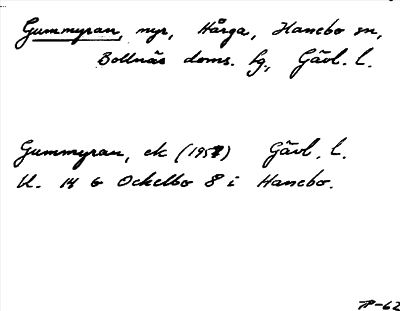 Gummyran, myr, Hårga, Hanebo sn,
Bollnäs doms. hg., Gävl. l.
Gummyran, ek (1957) Gävl. l.
U. 14 G Ockelbo 8 i Hanebo.
-62